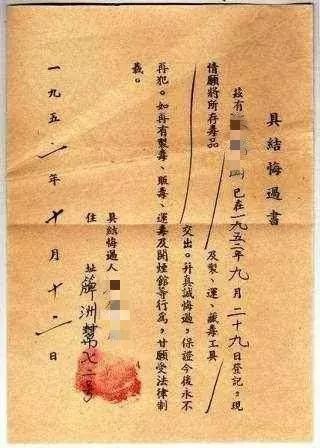 具結悔過書
茲有 已在一九五二年九月二十九日登記，現
情願將所存毒品 及製、運、藏毒工具
交出。幷真誠悔過，保證今後永不
再犯。如再有製毒、販毒、運毒及開煙館等行爲，甘願受法律制
裁。
具結悔過人
住址 簰洲 七二号
一九五二年十月十二日